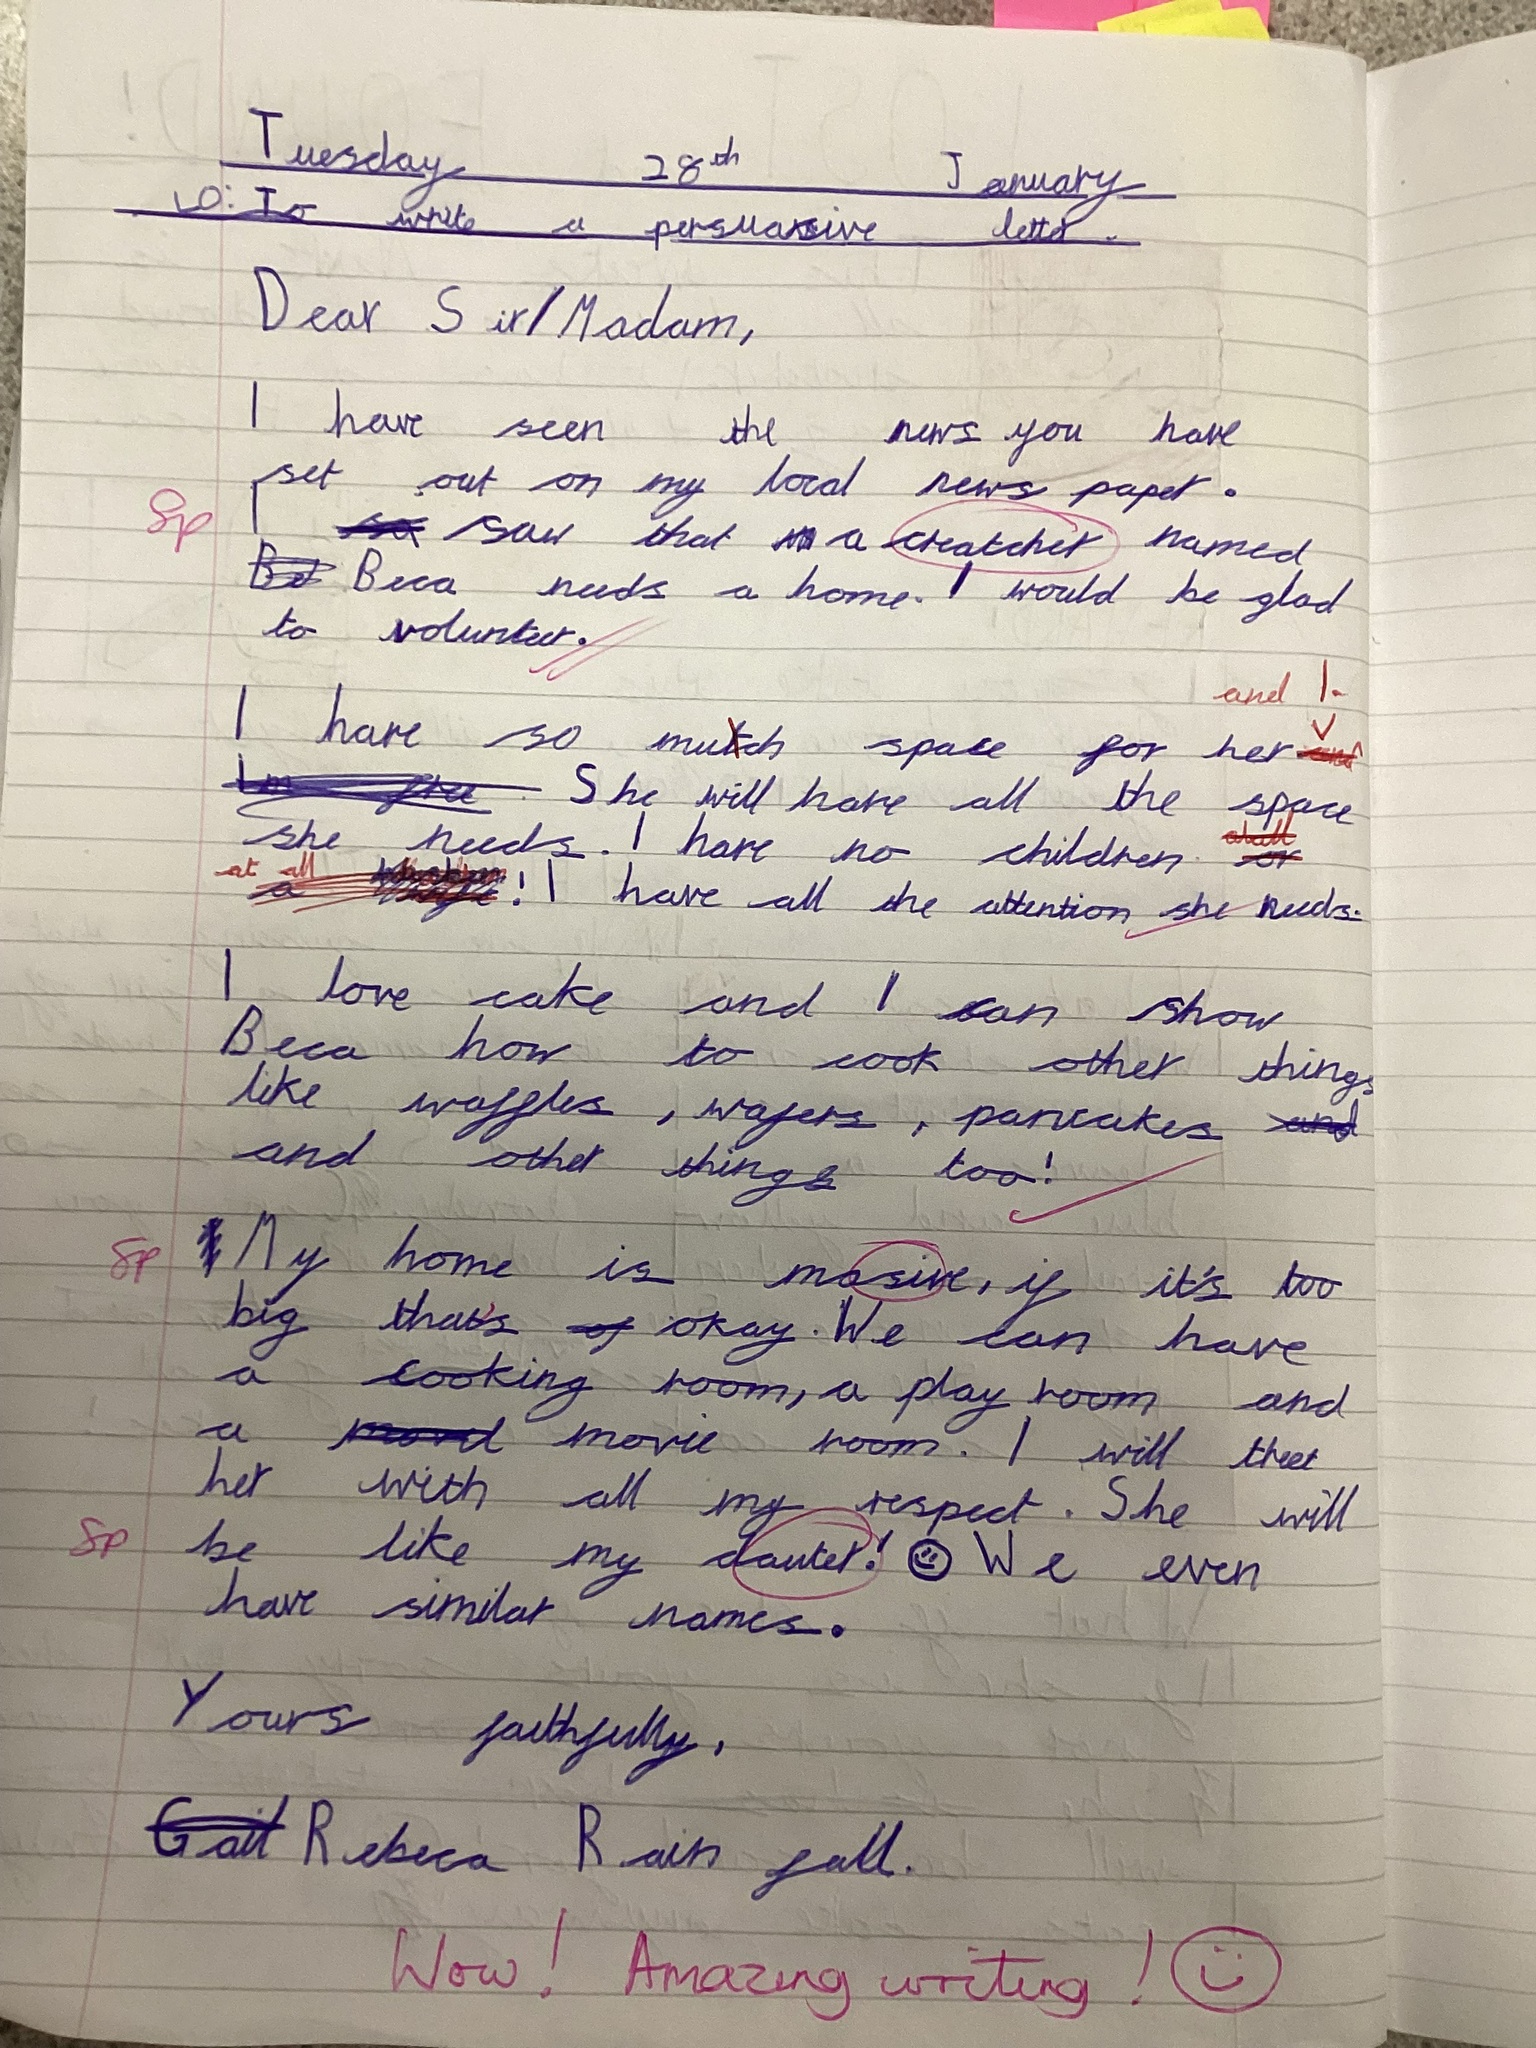 Tuesday 28th January
LO: To write a persuasive letter.
Dear Sir/Madam,
I have seen the news you have
set out on my local news paper.
Sp I saw that a creatcher named
Beca needs a home. I would be glad
to volunteer.
and I.
I have so mutch space for her
She will have all the space
she needs. I have no children
at all ! I have all the attention she needs.
I love cake and I can show
Beca how to cook other things
like waffles, wafers, pancakes and
and other things too!
Sp My home is masive, if it's too
big that's of okay. We can have
a cooking room, a play room and
a movie room. I will treet
her with all my respect. She will
Sp be like my dauter! We even
have similar names.
Yours faithfully,
Gail Rebeca Rain fall.
Wow! Amazing writing!